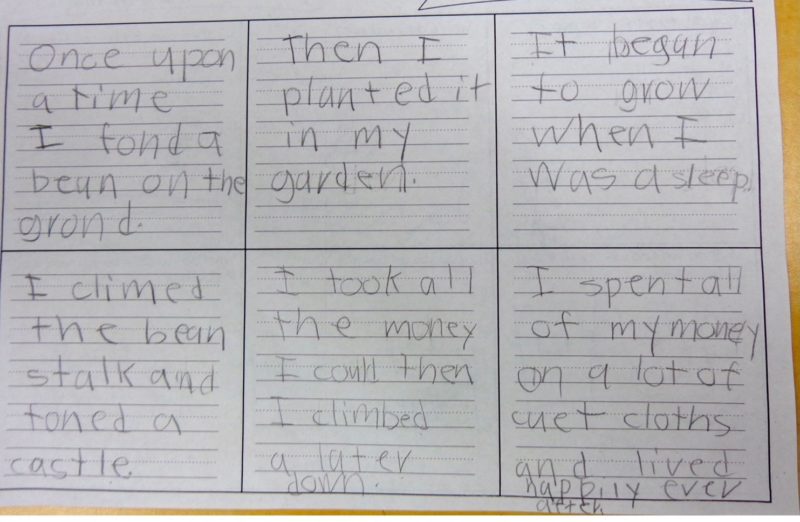 Once upon
a time
I fond a
bean on the
grond.
Then I
planted it
in my
garden.
It began
to grow
when I
was asleep.
I climed
the bean
stalk and
foned a
castle
I took all
the money
I could then
I climbed
a later
down.
I spent all
of my money
on a lot of
cuet cloths
and lived
happily ever
after